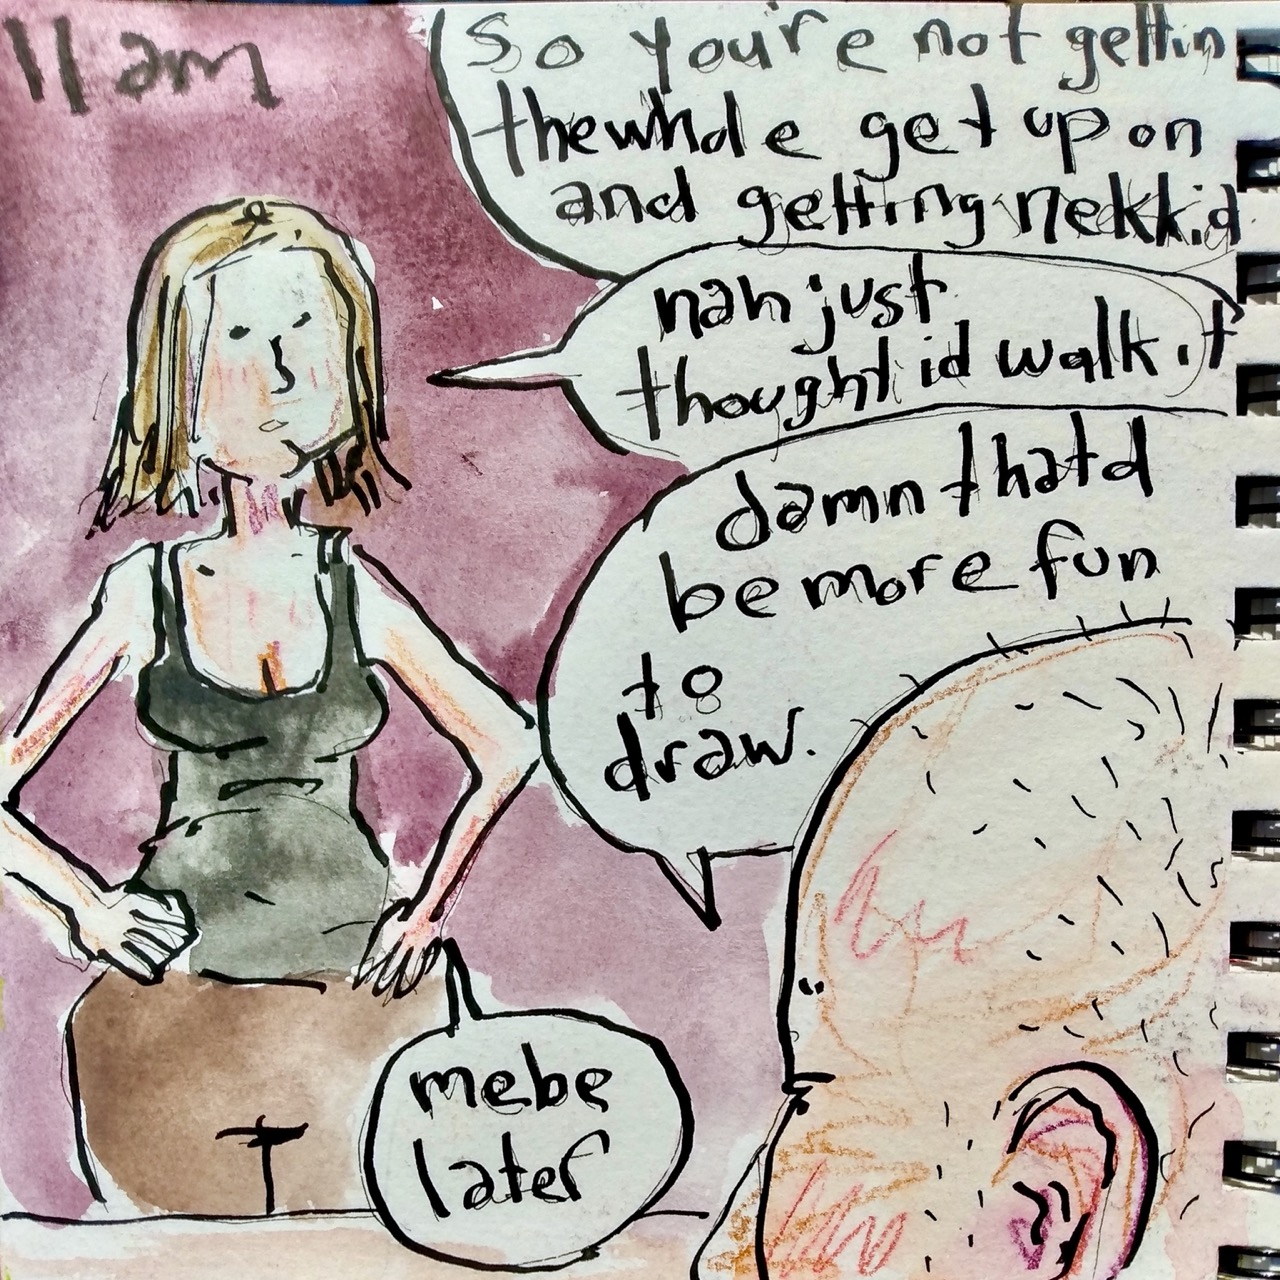 11 am
So you're not gettin
the whole get up on
and getting nekkid
nah just
thought id walk it
damn thatd
be more fun
to
draw.
mebe
later